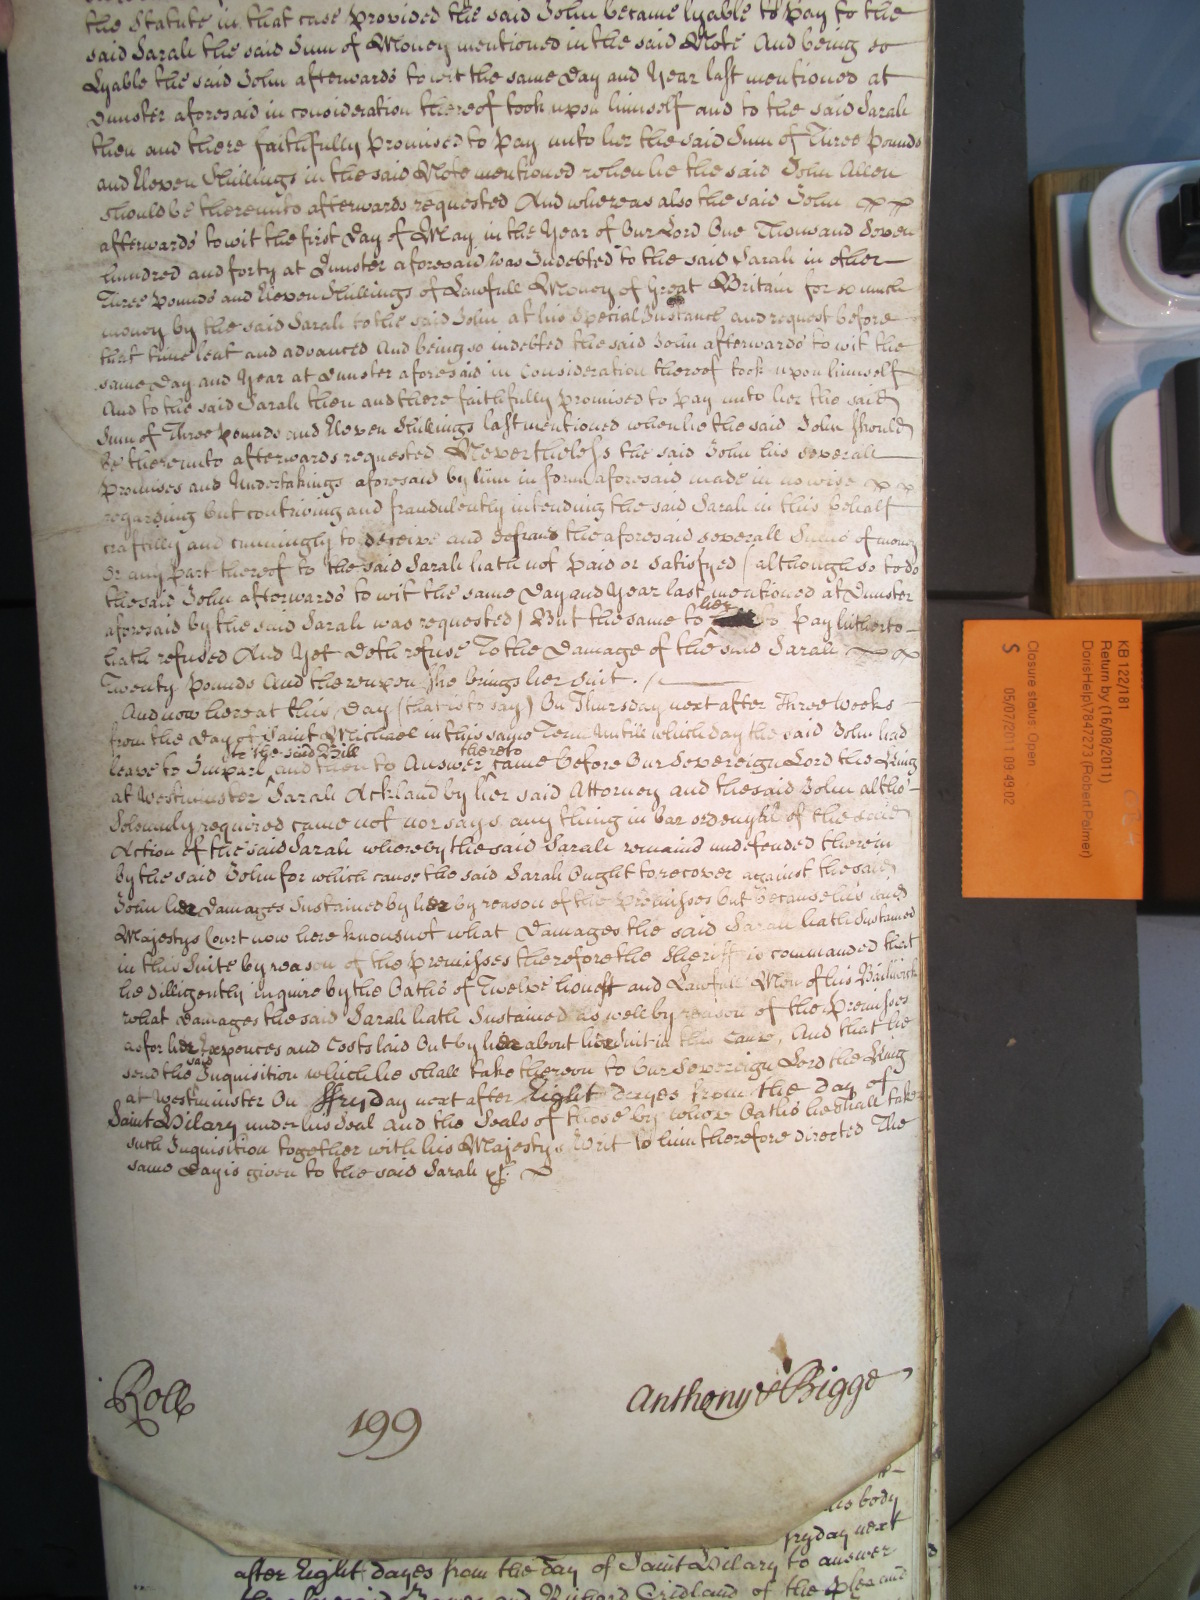 the Statute in that case provided the said John became lyable to Pay to the
said Sarah the said Sum of Money mentioned in the said Note And being so
Lyable the said John afterwards to wit the same Day and Year last mentioned at
Dunster aforesaid in consideration thereof took upon himself and to the said Sarah
then and there faithfully Promised to Pay unto her the said Sum of Three Pounds
and Eleven Shillings in the said Note mentioned when he the said John Allen
should be thereunto afterwards requested And whereas also the said John
afterwards to wit the first Day of May in the Year of Our Lord One Thousand Seven
hundred and forty at Dunster aforesaid was Indebted to the said Sarah in other
Three Pounds and Eleven Shillings of Lawfull Money of Great Britain for so much
money by the said Sarah to the said John at his Special Instance and request before
that time lent and advanced And being so indebted the said John afterwards to wit the
same Day and Year at Dunster aforesaid in Consideration thereof took upon himself
And to the said Sarah then and there faithfully promised to pay unto her the said
Sum of Three Pounds and Eleven Shillings last mentioned when he the said John should
be thereunto afterwards requested Nevertheless the said John his severall
Promises and Undertakings aforesaid by him in form aforesaid made in no wise
regarding but contriving and fraudulently intending the said Sarah in this behalf
craftily and cunningly to deceive and defraud the aforesaid severall Sums of money
Or any part thereof to the said Sarah hath not paid or satisfyed (although so to do
the said John afterwards to wit the same Day and Year last mentioned at Dunster
aforesaid by the said Sarah was requested) But the same to her to Pay hitherto
hath refused And Yet doth refuse To the Damage of the said Sarah
Twenty Pounds And thereupon she brings her suit.
And now here at this Day (that is to say) On Thursday next after Three Weeks
from the Day of Saint Michael in this same Term Untill which day the said John had
leave to Imparl to the said Bill and then to Answer thereto came before Our Sovereign Lord the King
at Westminster Sarah Ackland by her said Attorney and the said John altho'
Solemnly required came not nor says any thing in bar or denyal of the said
Action of the said Sarah whereby the said Sarah remains undefended therein
by the said John for which cause the said Sarah Ought to recover against the said
John her Damages Sustained by her by reason of the Premisses but because his said
Majestys Court now here knows not what Damages the said Sarah hath Sustained
in this Suite by reason of the premisses therefore the Sheriff is commanded that
he dilligently inquire by the Oaths of Twelve honest and Lawfull Men of his Bailiwick
what Damages the said Sarah hath Sustained as well by reason of the Premisses
as for her Expences and Costs laid Out by her about her Suit in this Cause, And that he
send the said Inquisition which he shall take thereon to Our Sovereign Lord the King
at Westminster On ffryday next after Eight dayes from the day of
Saint Hilary under his Seal and the Seals of those by whose Oaths he shall take
such Inquisition together with his Majestys Writ to him therefore directed The
same Day is given to the said Sarah &c.
Roll
199
Anthony & Bigge
his body
fryday next
after Eight dayes from the Day of Saint Hilary to answer
and Richard Cridland of the plea and
KB 122/181
Return by (16/08/2011)
DorisHelp17847273 (Robert Palmer)
Closure status: Open
S 05/07/2011 09:49:02